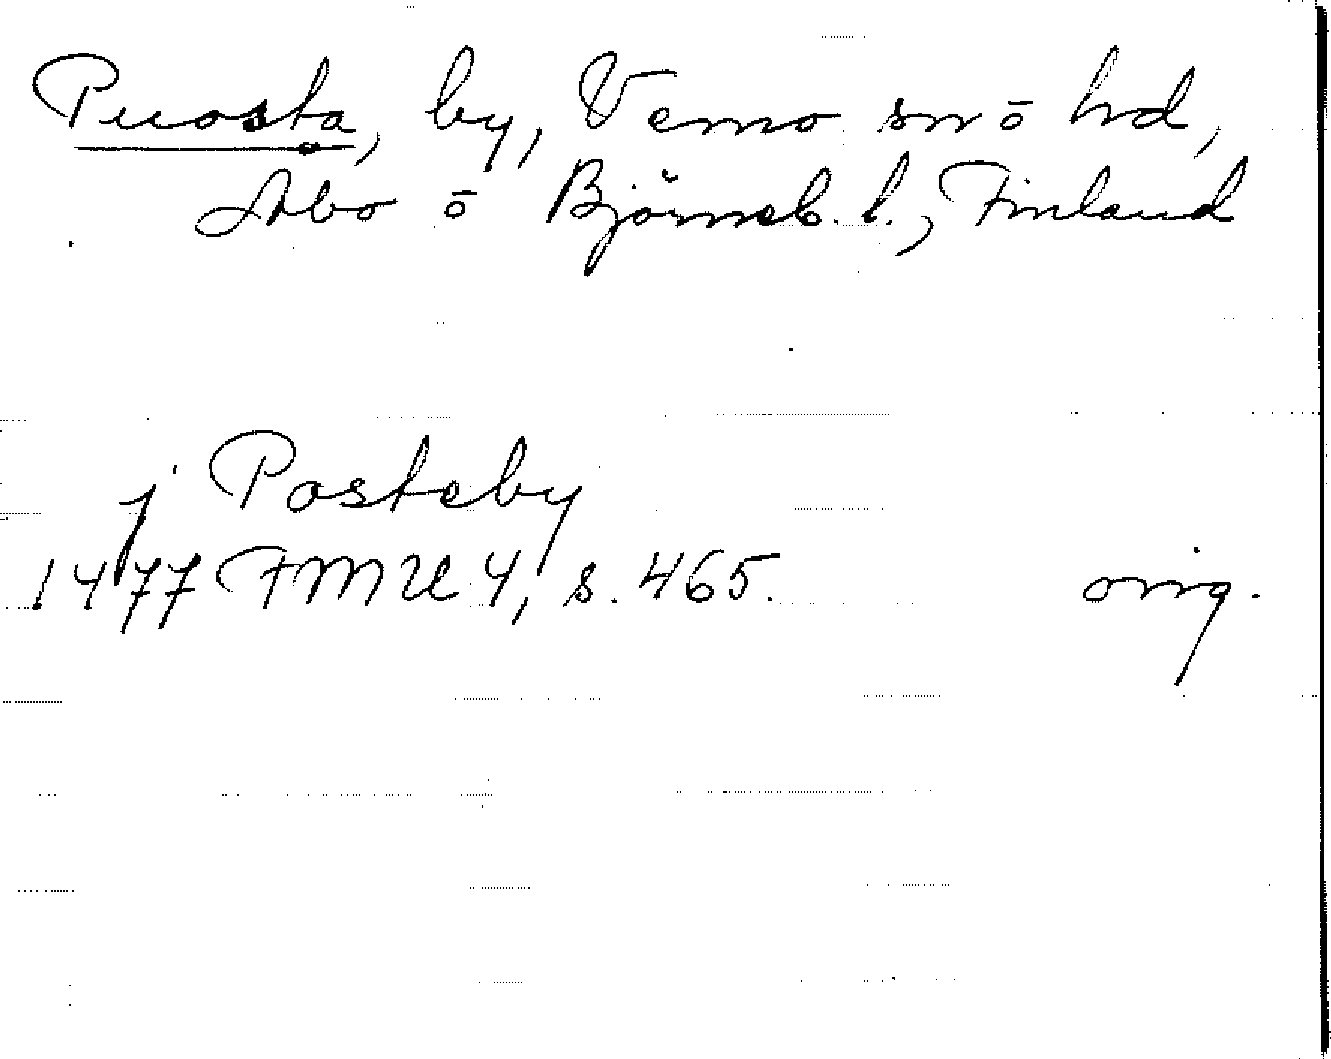 Puosta, by, Vemo sn ō hd,
Åbo ō Björneb. l., Finland
j Posteby
1477 FMU 4, s. 465. orig.